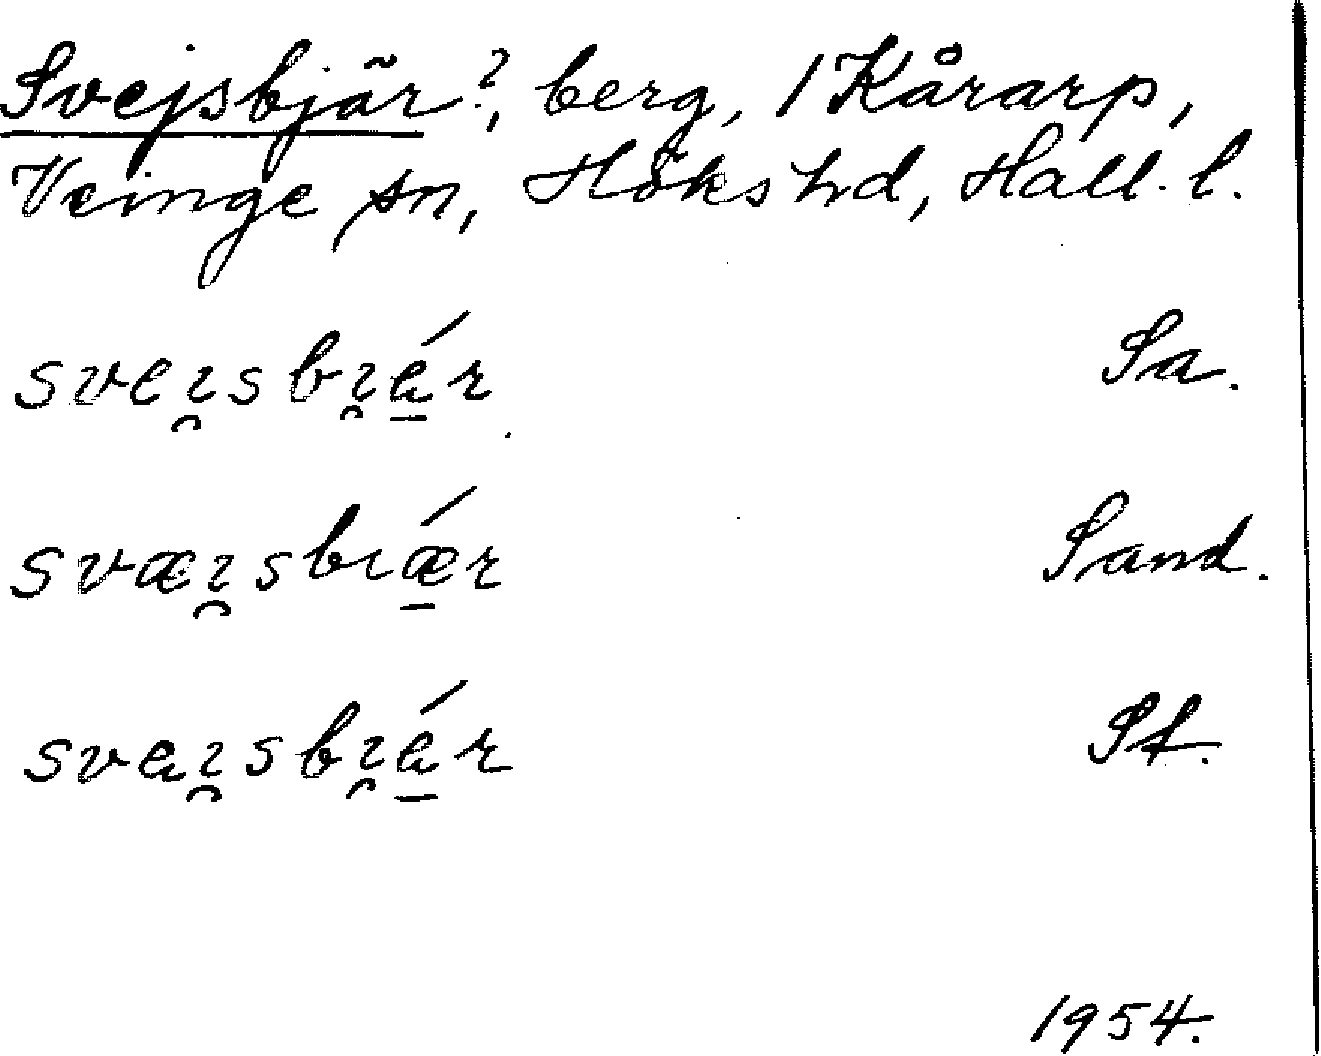 Svejsbjär?, berg, / Kårarp,
Veinge sn, Höks hd, Hall. l.
sveı̯sbı̯ǽ̠r Sa.
svæı̯sbıǽ̠r Sand.
svaı̯sbı̯ǽ̠r St.
1954.